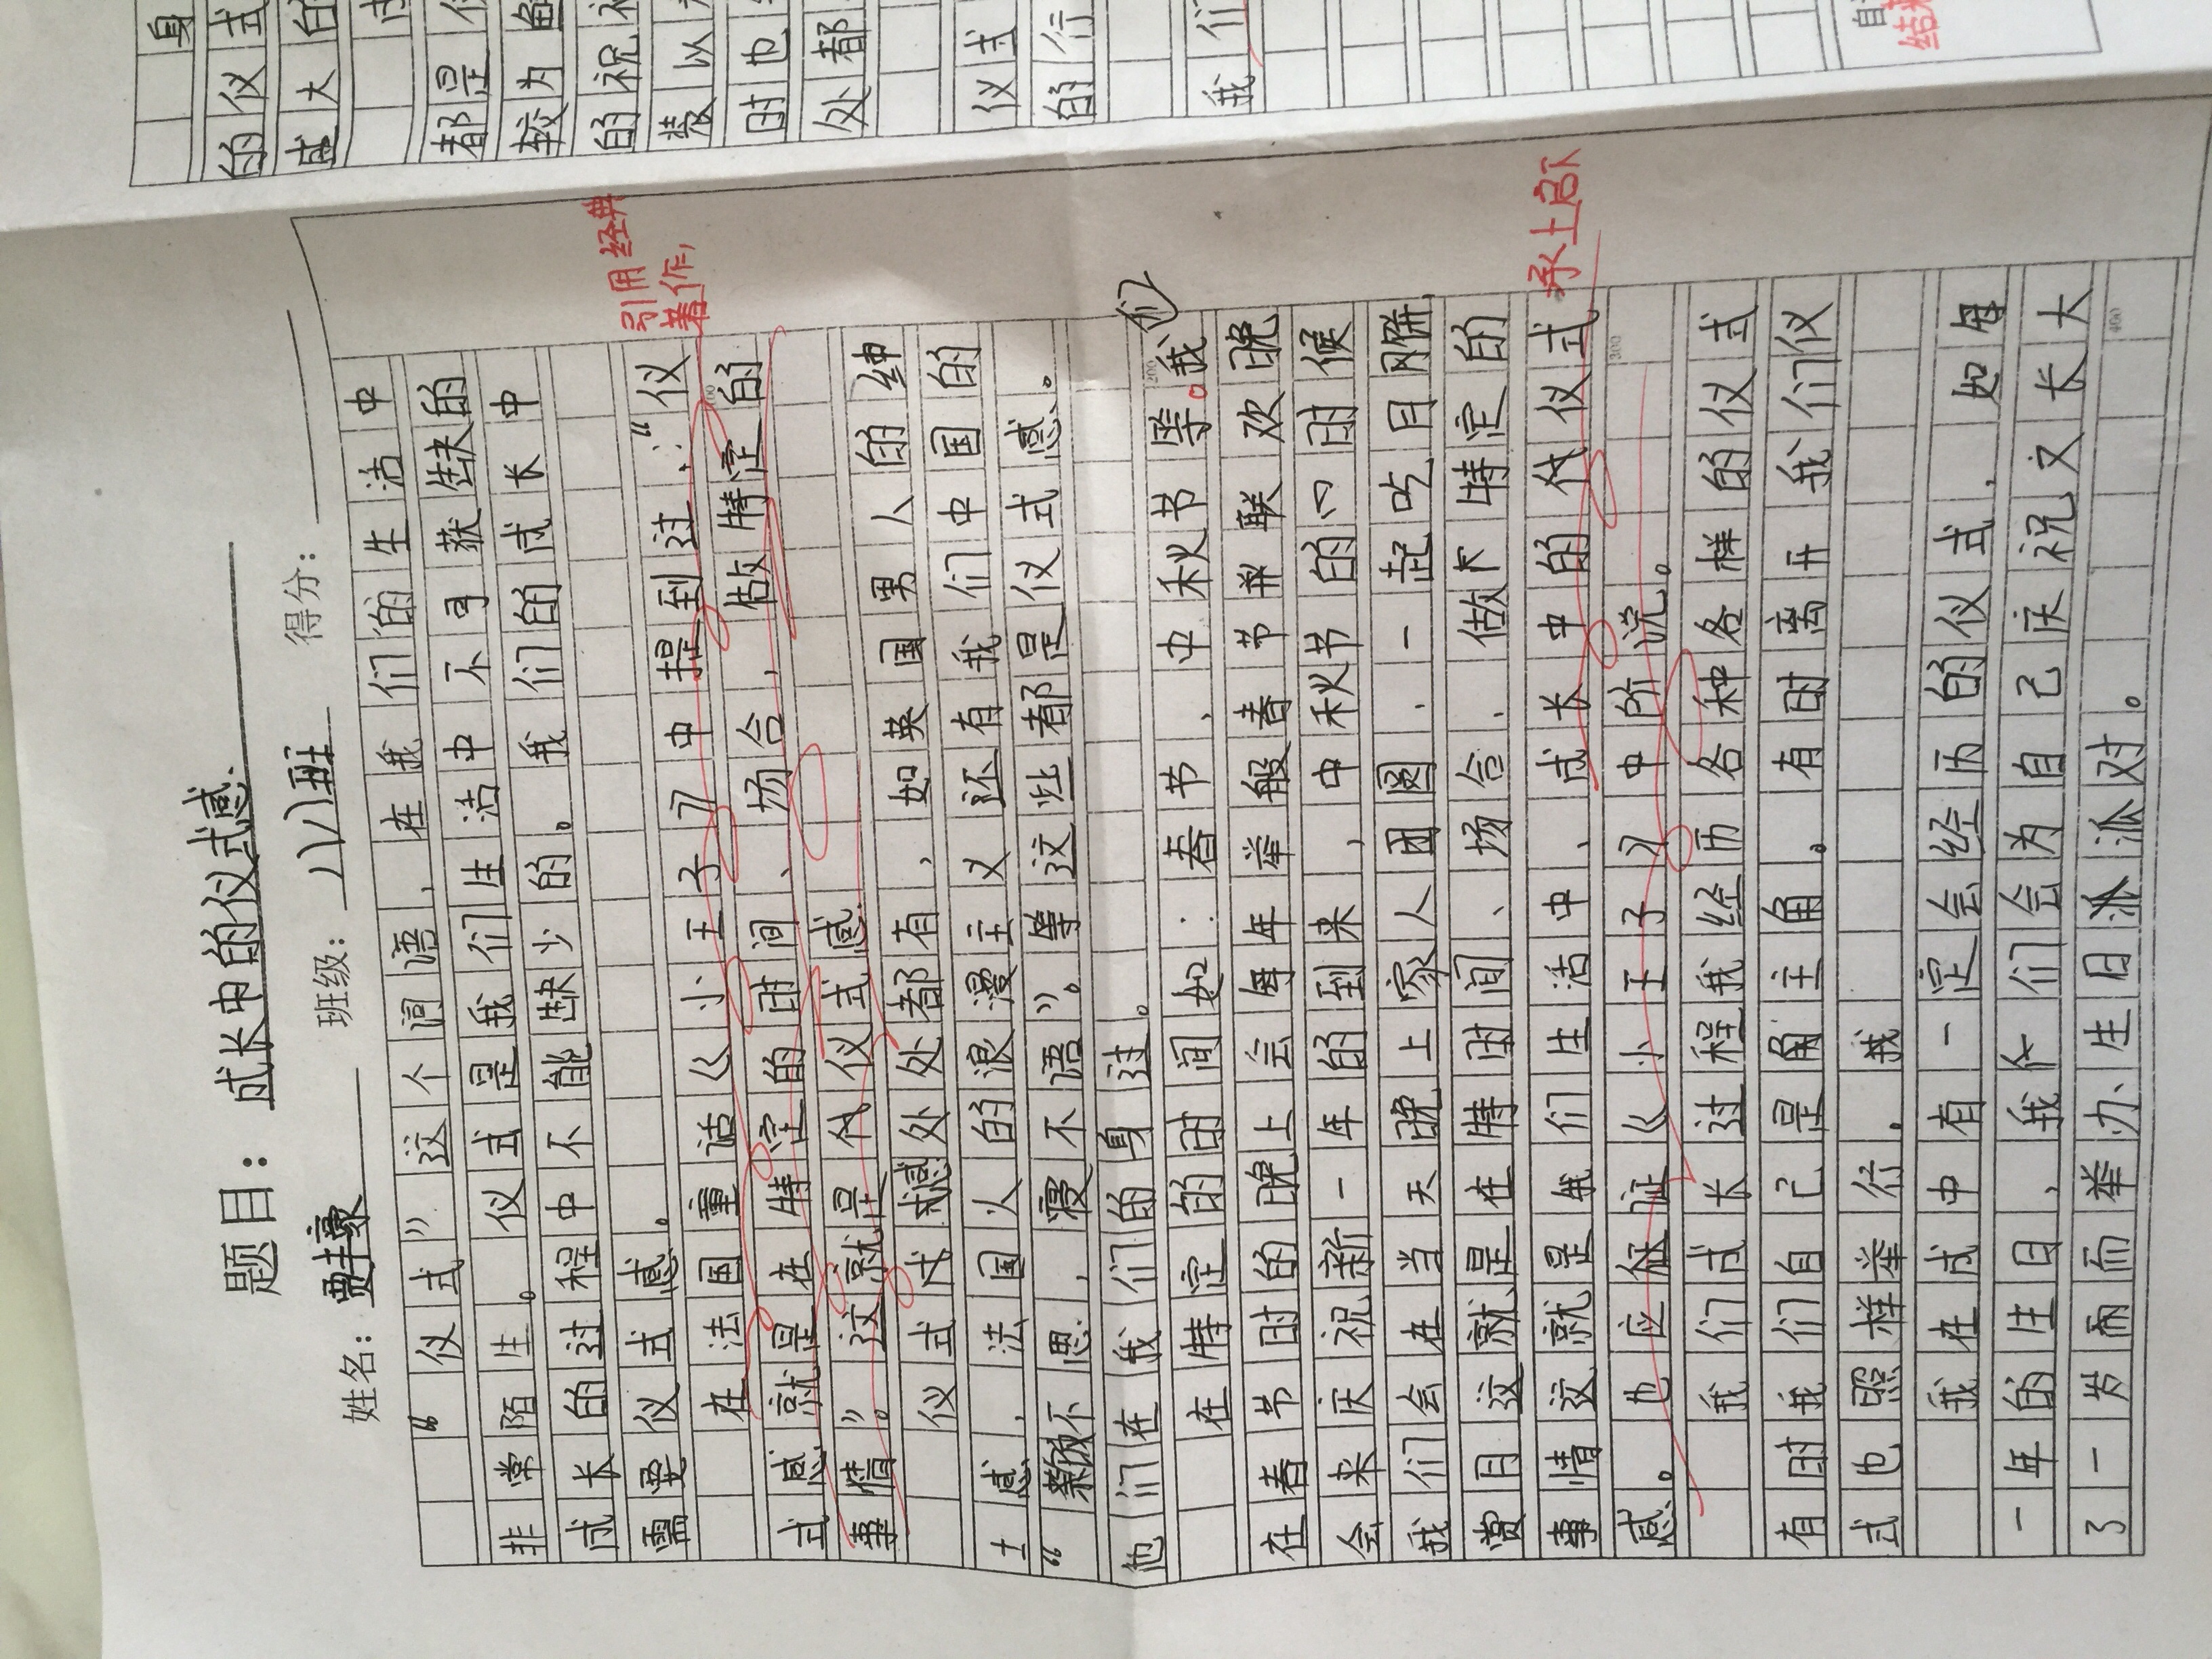 题目：成长中的仪式感
姓名：贾丰豪 班级：八八班 得分：
“仪式”这个词语，在我们的生活中
非常陌生。仪式是我们生活中不可获缺的
成长的过程中不能缺少的。我们的成长中
需要仪式感。
在法国童话《小王子》中提到过：“仪
式感就是在特定的时间、场合，做特定的
事情”。这就是代仪式感
引用经典
著作
仪式感处处都有，如英国男人的绅
士感，法国人的浪漫主义还有我们中国的
“寝不语”。等这些都是仪式感。
他们在我们的身边。
在特定的时间如：春节、中秋节等。我们
在春节时的晚上会每年举般春节联欢晚
会来庆祝新一年的到来，中秋节的时候
我们会在当天晚上家人团圆、一起吃月饼
赏月这就是在特时间、场合、做下特定的
事情这就是我们生活中、成长中的代仪式
感。也应征《小王子》中所说。
承上启下
我们成长过程我经历各种各样的仪式
有时我们自己是主角。有时离开我们仪
式也照样举行。我
我在成中有一定会经历的仪式，如每
一年的生日，我们会为自己庆祝又长大
了一岁而举办生日派对。
200
300
400
身
的仪式
感大的
都是
较为
的祝
装以
时也
处都
仪式
的行
我们
自
结